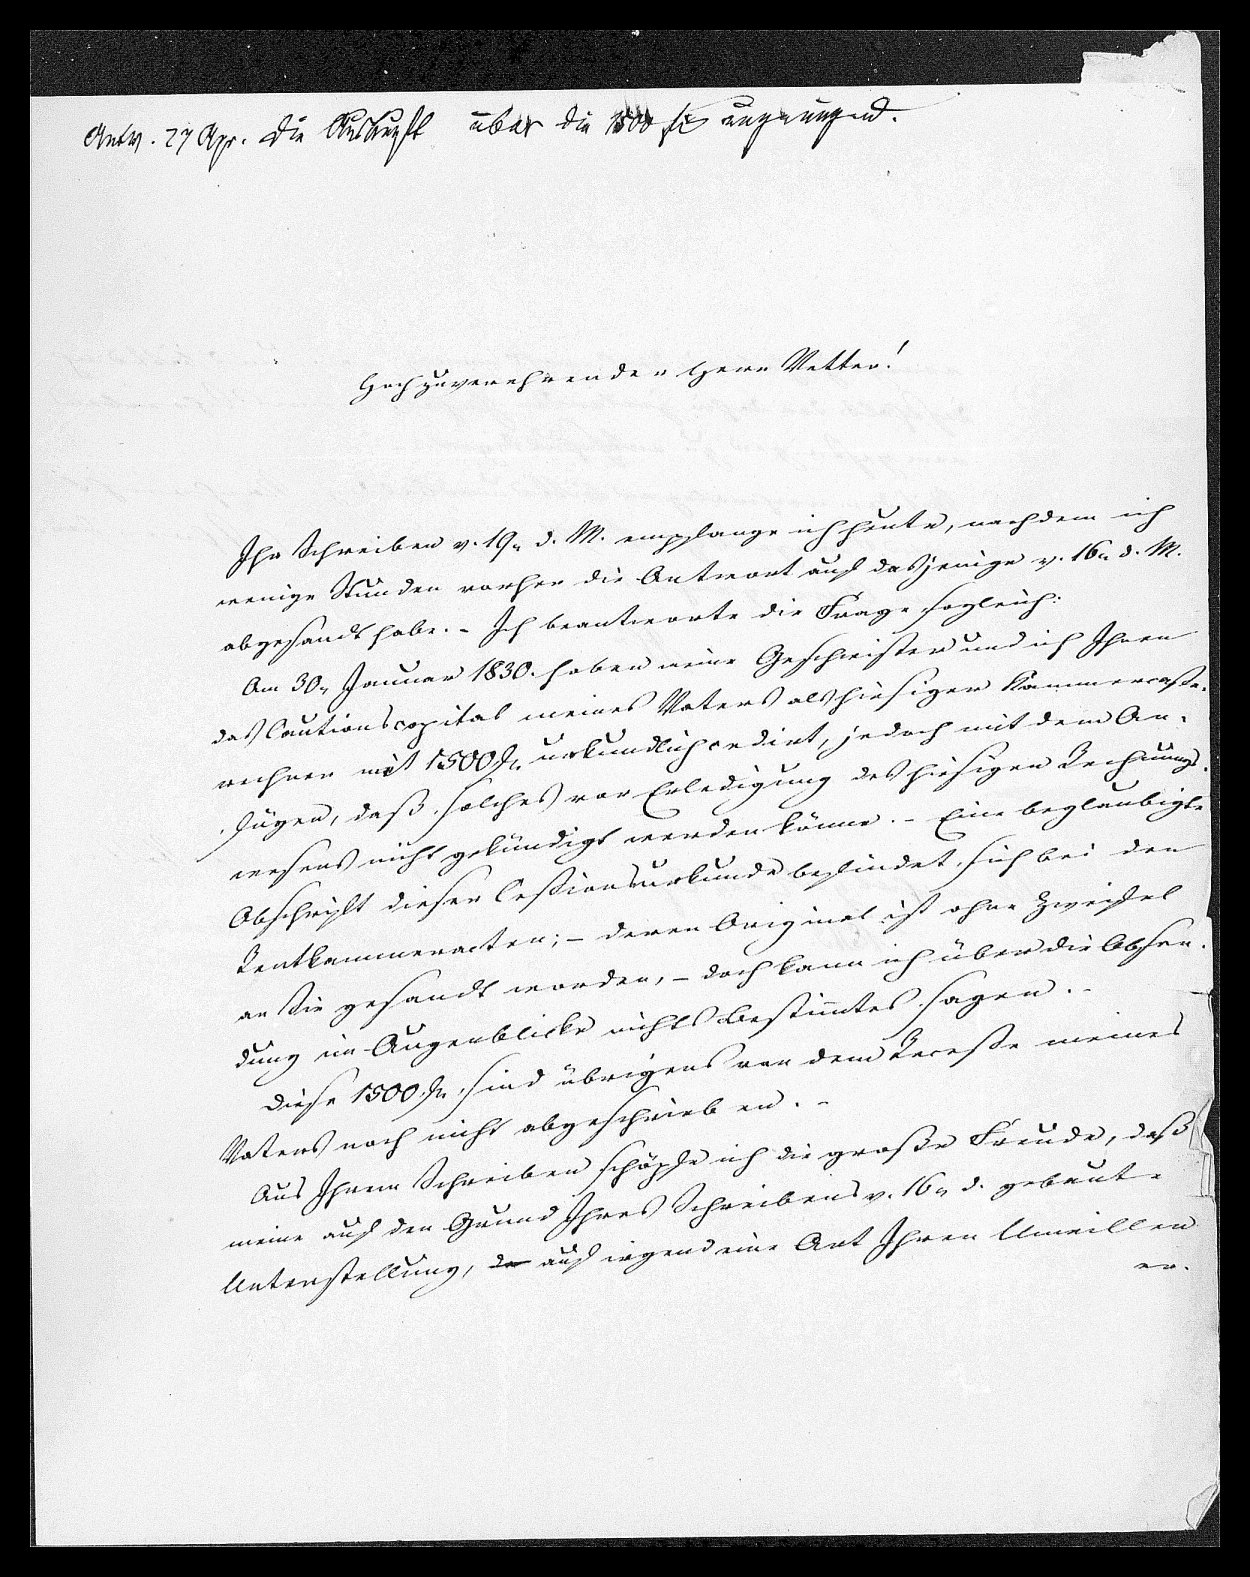 Antw. 27 Apr. die Auskunft über die 1500 f. ungenügend.
Hochzuverehrender Herr Vetter!
Ihr Schreiben v. 19n d. M. empfange ich heute, nachdem ich
wenige Stunden vorher die Antwort auf dasjenige v. 16n d. M.
abgesandt habe. - Ich beantworte die Frage sogleich:
Am 30n Januar 1830. haben meine Geschwister und ich Ihnen
das Cautionscapital meines Vaters als hiesiger Kammercasse-
rechner mit 1500 fl. urkundlich cedirt, jedoch mit dem An-
fügen, daß solches vor Erledigung des hiesigen Rechnungs-
wesens nicht gekündigt werden könne. - Eine beglaubigte
Abschrift dieser Cessionsurkunde befindet sich bei den
Rentkammeracten; - deren Original ist ohne Zweifel
an Sie gesandt worden, - doch kann ich über die Absen-
dung im Augenblicke nichts Bestimmtes sagen. -
Diese 1500 fl. sind übrigens von dem Recesse meines
Vaters noch nicht abgeschrieben. -
Aus Ihrem Schreiben schöpfe ich die große Freude, daß
meine auf den Grund Ihres Schreibens v. 16n d. gebaute
Unterstellung, auf irgend eine Art Ihren Unwillen
er-